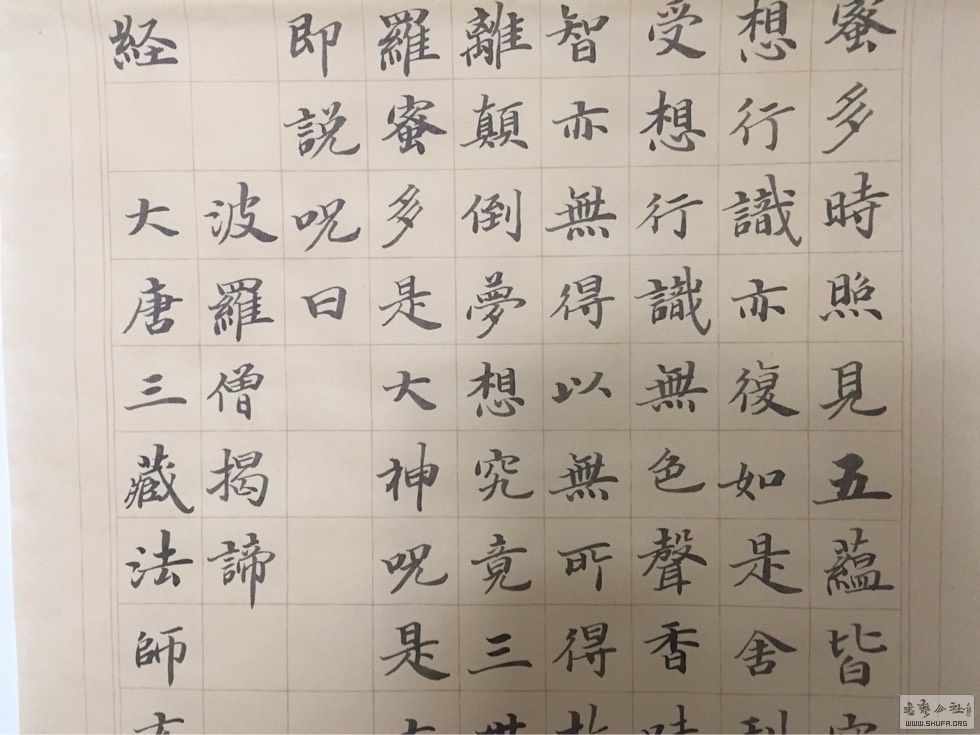 蜜多時照見五蘊皆空
想行識亦復如是舍利
受想行識無色聲香味
智亦無得以無所得故
離顛倒夢想究竟三世
羅蜜多是大神呪是大
即說呪曰
波羅僧揭諦
経 大唐三藏法師玄
WWW.SHUFA.ORG